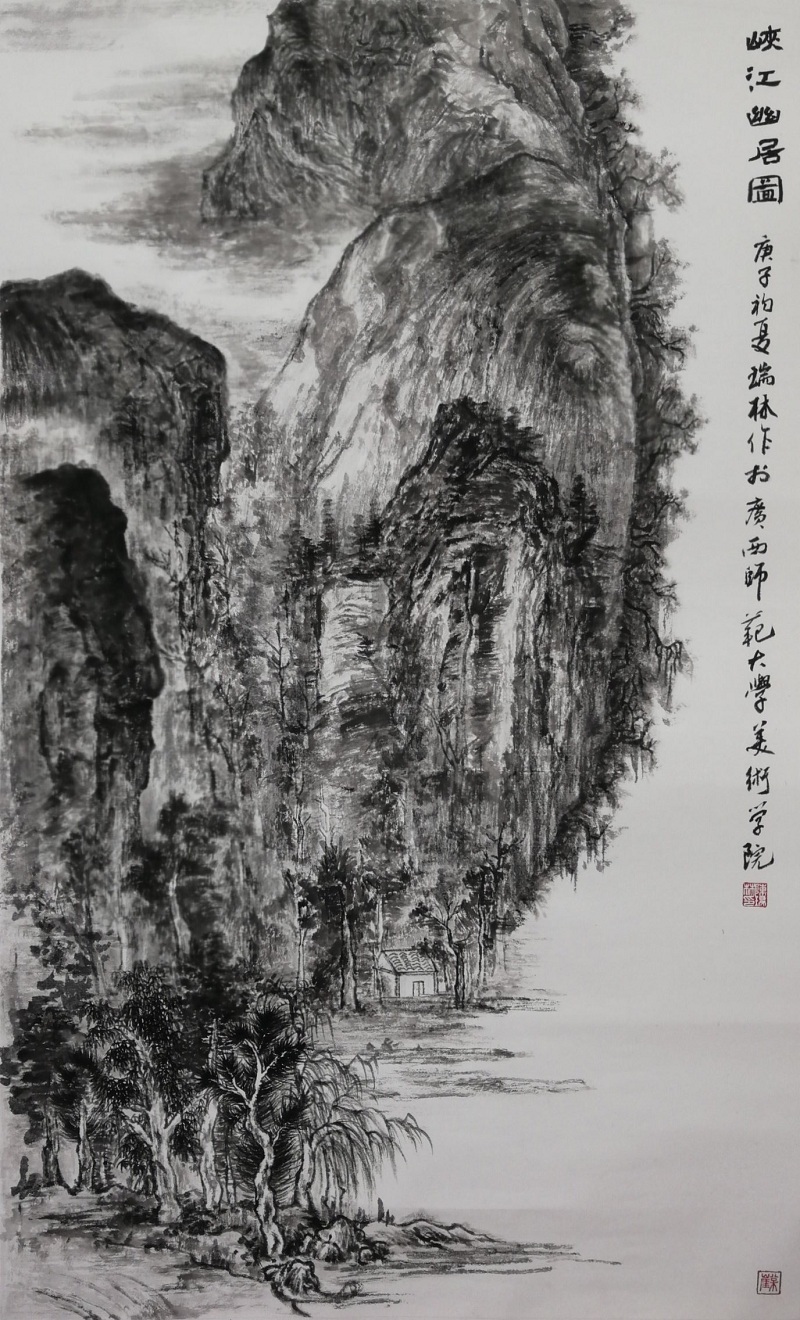 峽江幽居圖
庚子初夏瑞林作於廣西師範大學美術学院